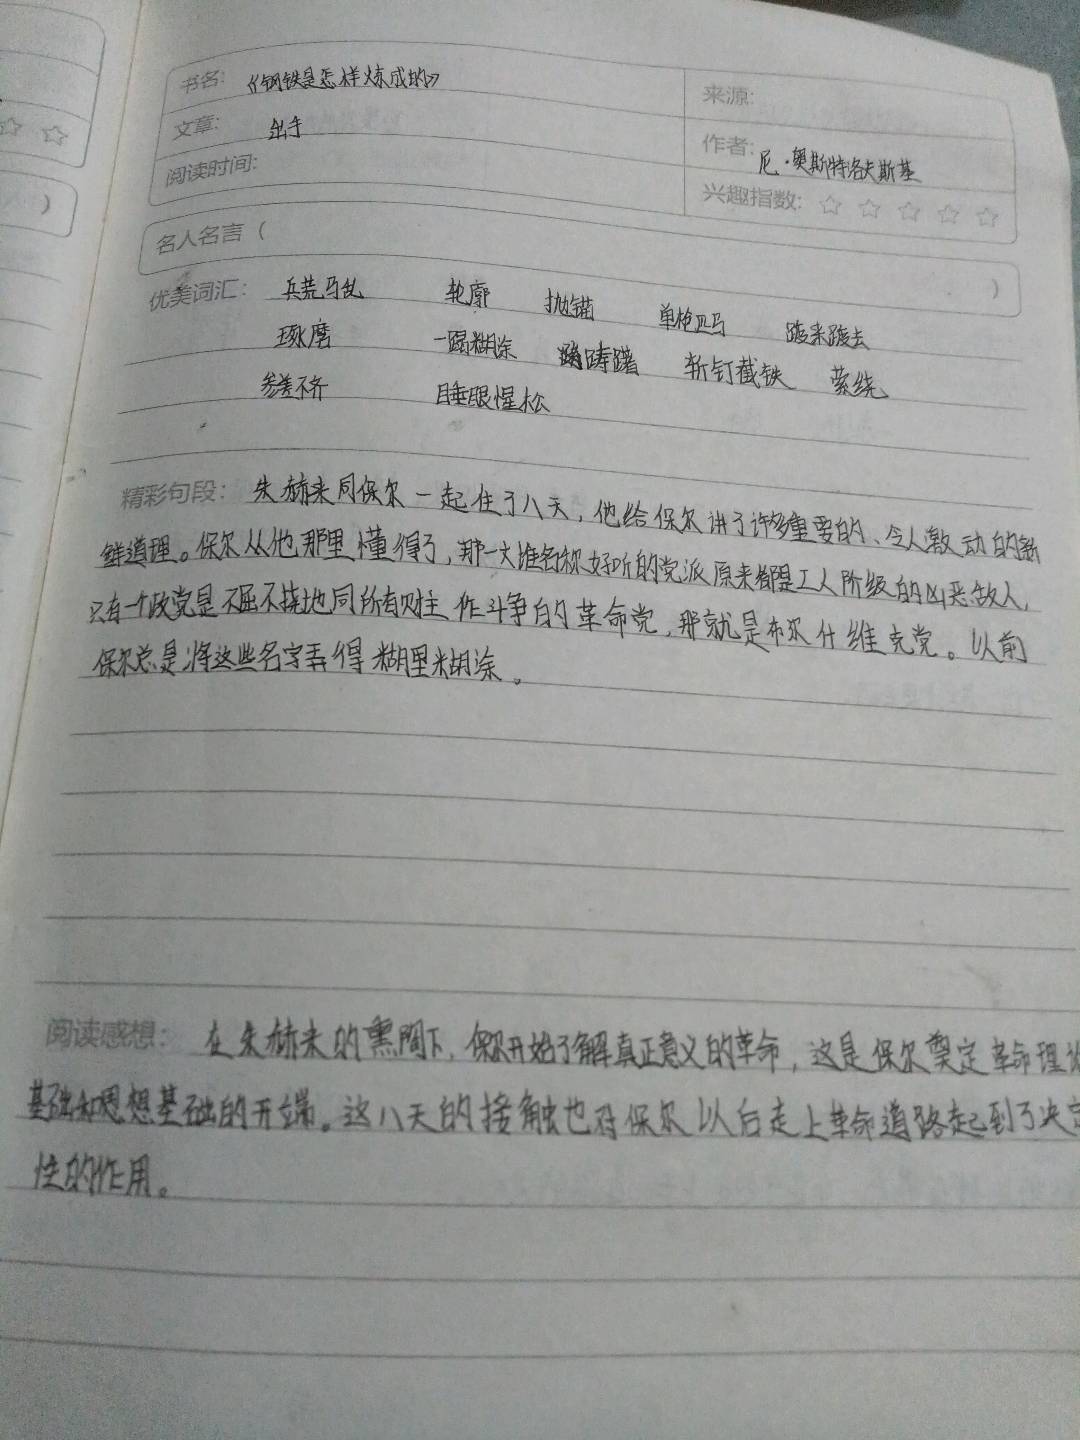 书名: 《钢铁是怎样炼成的》
来源:
文章: 出手
作者: 尼·奥斯特洛夫斯基
阅读时间:
兴趣指数: ☆ ☆ ☆ ☆ ☆
名人名言（ ）
优美词汇: 兵荒马乱 轮廓 抛锚 单枪匹马 踱来踱去
琢磨 一蹋糊涂 踌躇 斩钉截铁 萦绕
参差不齐 睡眼惺松
精彩句段: 朱赫来同保尔一起住了八天，他给保尔讲了许多重要的、令人激动的新
鲜道理。保尔从他那里懂得了，那一大堆名称好听的党派原来都是工人阶级的凶恶敌人,
只有一个政党是不屈不挠地同所有财主作斗争的革命党，那就是布尔什维克党。以前
保尔总是将这些名字弄得糊里糊涂。
阅读感想: 在朱赫来的熏陶下，保尔开始了解真正意义的革命，这是保尔奠定革命理论
基础和思想基础的开端。这八天的接触也对保尔以后走上革命道路起到了决定
性的作用。